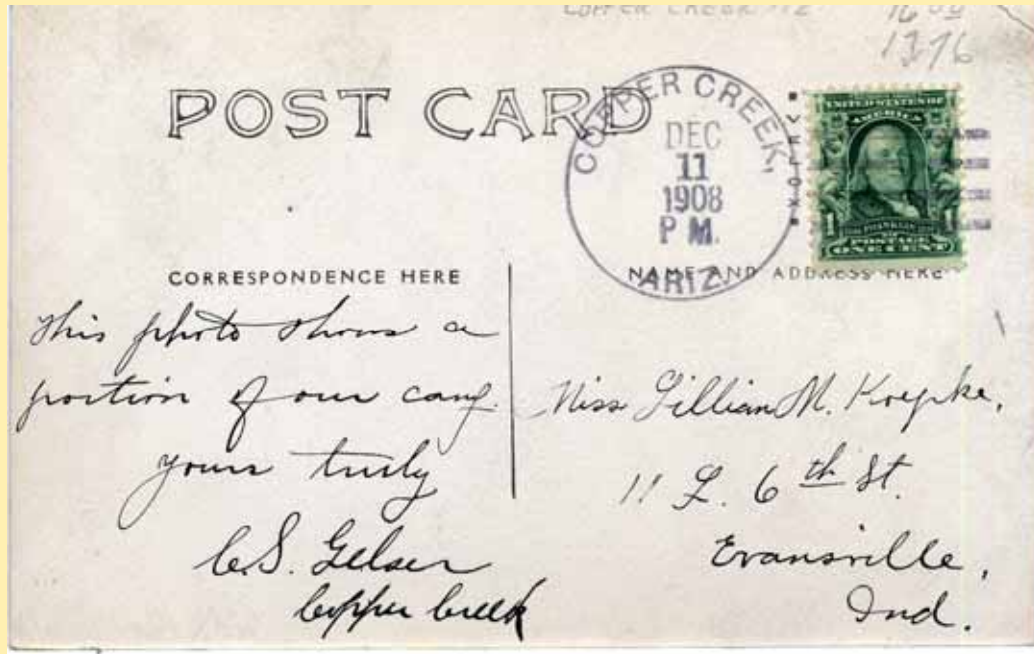 COPPER CREEK
1376
POST CARD
COPPER CREEK,
DEC
11
1908
P M.
ARIZ.
UNITED STATES OF
AMERICA
1 FRANKLIN 1
POSTAGE
ONE CENT
CORRESPONDENCE HERE
NAME AND ADDRESS HERE
This photo shows a
portion of our camp.
yours truly
C.S. Gelser
Copper Creek
Miss Lillian M. Koepke,
11 L. 6th St.
Evansville,
Ind.